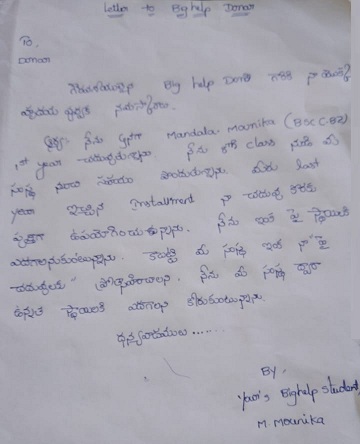 Letter to Big help Donar
To,
Donar
గౌరవనీయులైన Big help Donar గారికి నా యొక్క
హృదయ పూర్వక నమస్కారాలు.
నేను Mandala. Mounika (BSC C.BZ)
1st year చదువుతున్నాను. నేను class నుండి మీ
సంస్థ నుండి సహాయం పొందుతున్నాను. మీరు last
year ఇచ్చిన Installment నా చదువు కొరకు
పూర్తిగా ఉపయోగించుకున్నాను. నేను ఇంకా పై స్థాయికి
ఎదగాలనుకుంటున్నాను. కాబట్టి మీ సంస్థ ఇంకా నా పై
చదువులకు ప్రోత్సహించాలని. నేను మీ సంస్థ ద్వారా
ఉన్నత స్థాయికి ఎదగాలని కోరుకుంటున్నాను.
ధన్యవాదములు ......
By,
Your's Bighelp student
M. Mounika